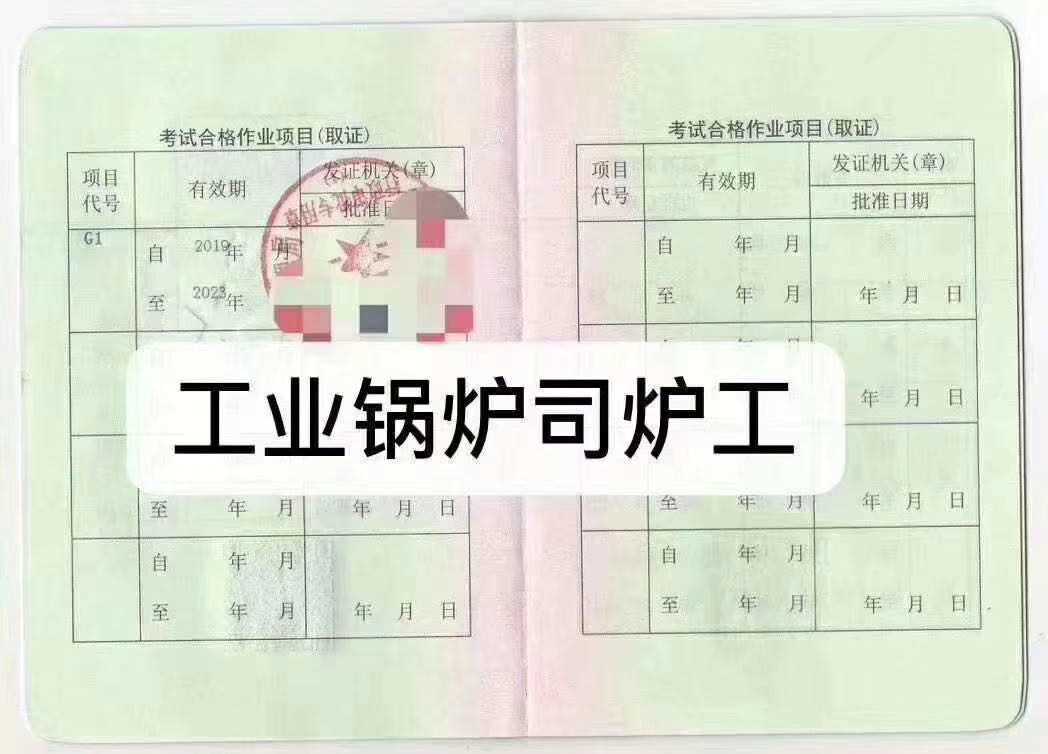 考试合格作业项目(取证)
项目
代号
有效期
发证机关(章)
批准日
G1
自 2019年 月
至 2023年
工业锅炉司炉工
至 年 月
年 月 日
自 年 月
至 年 月
年 月 日
考试合格作业项目(取证)
项目
代号
有效期
发证机关(章)
批准日期
自 年 月
至 年 月
年 月 日
年 月 日
至 年 月
年 月 日
自 年 月
至 年 月
年 月 日